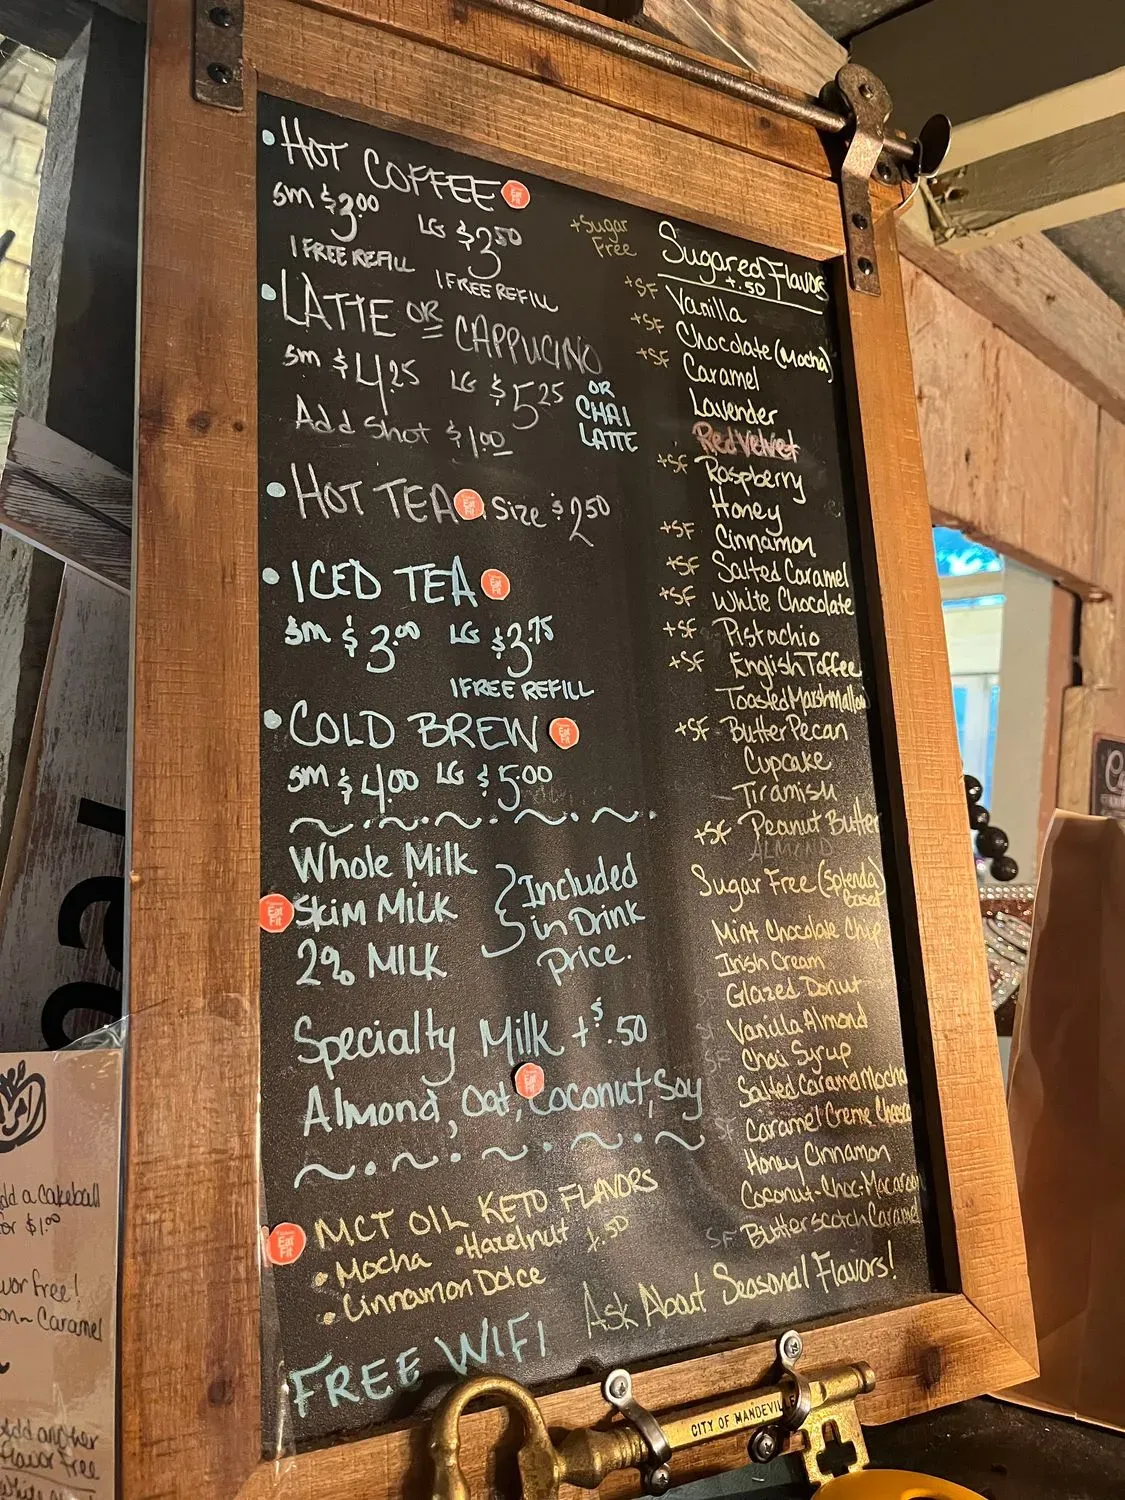 • HOT COFFEE Eat Fit
SM $3.00 LG $3.50
1 FREE REFILL 1 FREE REFILL
• LATTE OR CAPPUCINO
SM $4.25 LG $5.25
OR
CHAI
LATTE
Add Shot $1.00
• HOT TEA Eat Fit Size $2.50
• ICED TEA Eat Fit
SM $3.00 LG $3.75
1 FREE REFILL
• COLD BREW Eat Fit
SM $4.00 LG $5.00
~ • ~ • ~ • ~ • ~ •
Whole Milk
Eat Fit Skim Milk
2% MILK
} Included
in Drink
price.
Specialty Milk + $.50
Almond, Oat, Coconut, Soy
Eat Fit
~ • ~ • ~ • ~ • ~
Eat Fit MCT OIL KETO FLAVORS
• Mocha • Hazelnut +.50
• Cinnamon Dolce
FREE WIFI
+Sugar
Free
Sugared Flavors
+.50
+SF Vanilla
+SF Chocolate (Mocha)
+SF Caramel
Lavender
Red Velvet
+SF Raspberry
Honey
+SF Cinnamon
+SF Salted Caramel
+SF White Chocolate
+SF Pistachio
+SF English Toffee
Toasted Marshmallow
+SF Butter Pecan
Cupcake
Tiramisu
+SF Peanut Butter
ALMOND
Sugar Free (Splenda)
based
Mint Chocolate Chip
Irish Cream
SF Glazed Donut
SF Vanilla Almond
SF Chai Syrup
Salted Caramel Mocha
SF Caramel Creme Cheese
Honey Cinnamon
Coconut-Choc-Macaroon
SF Butterscotch Caramel
Ask About Seasonal Flavors!
CITY OF MANDEVILLE
dd a cakeball
for $1.00
vor free!
on ~ Caramel
Add another
flavor free